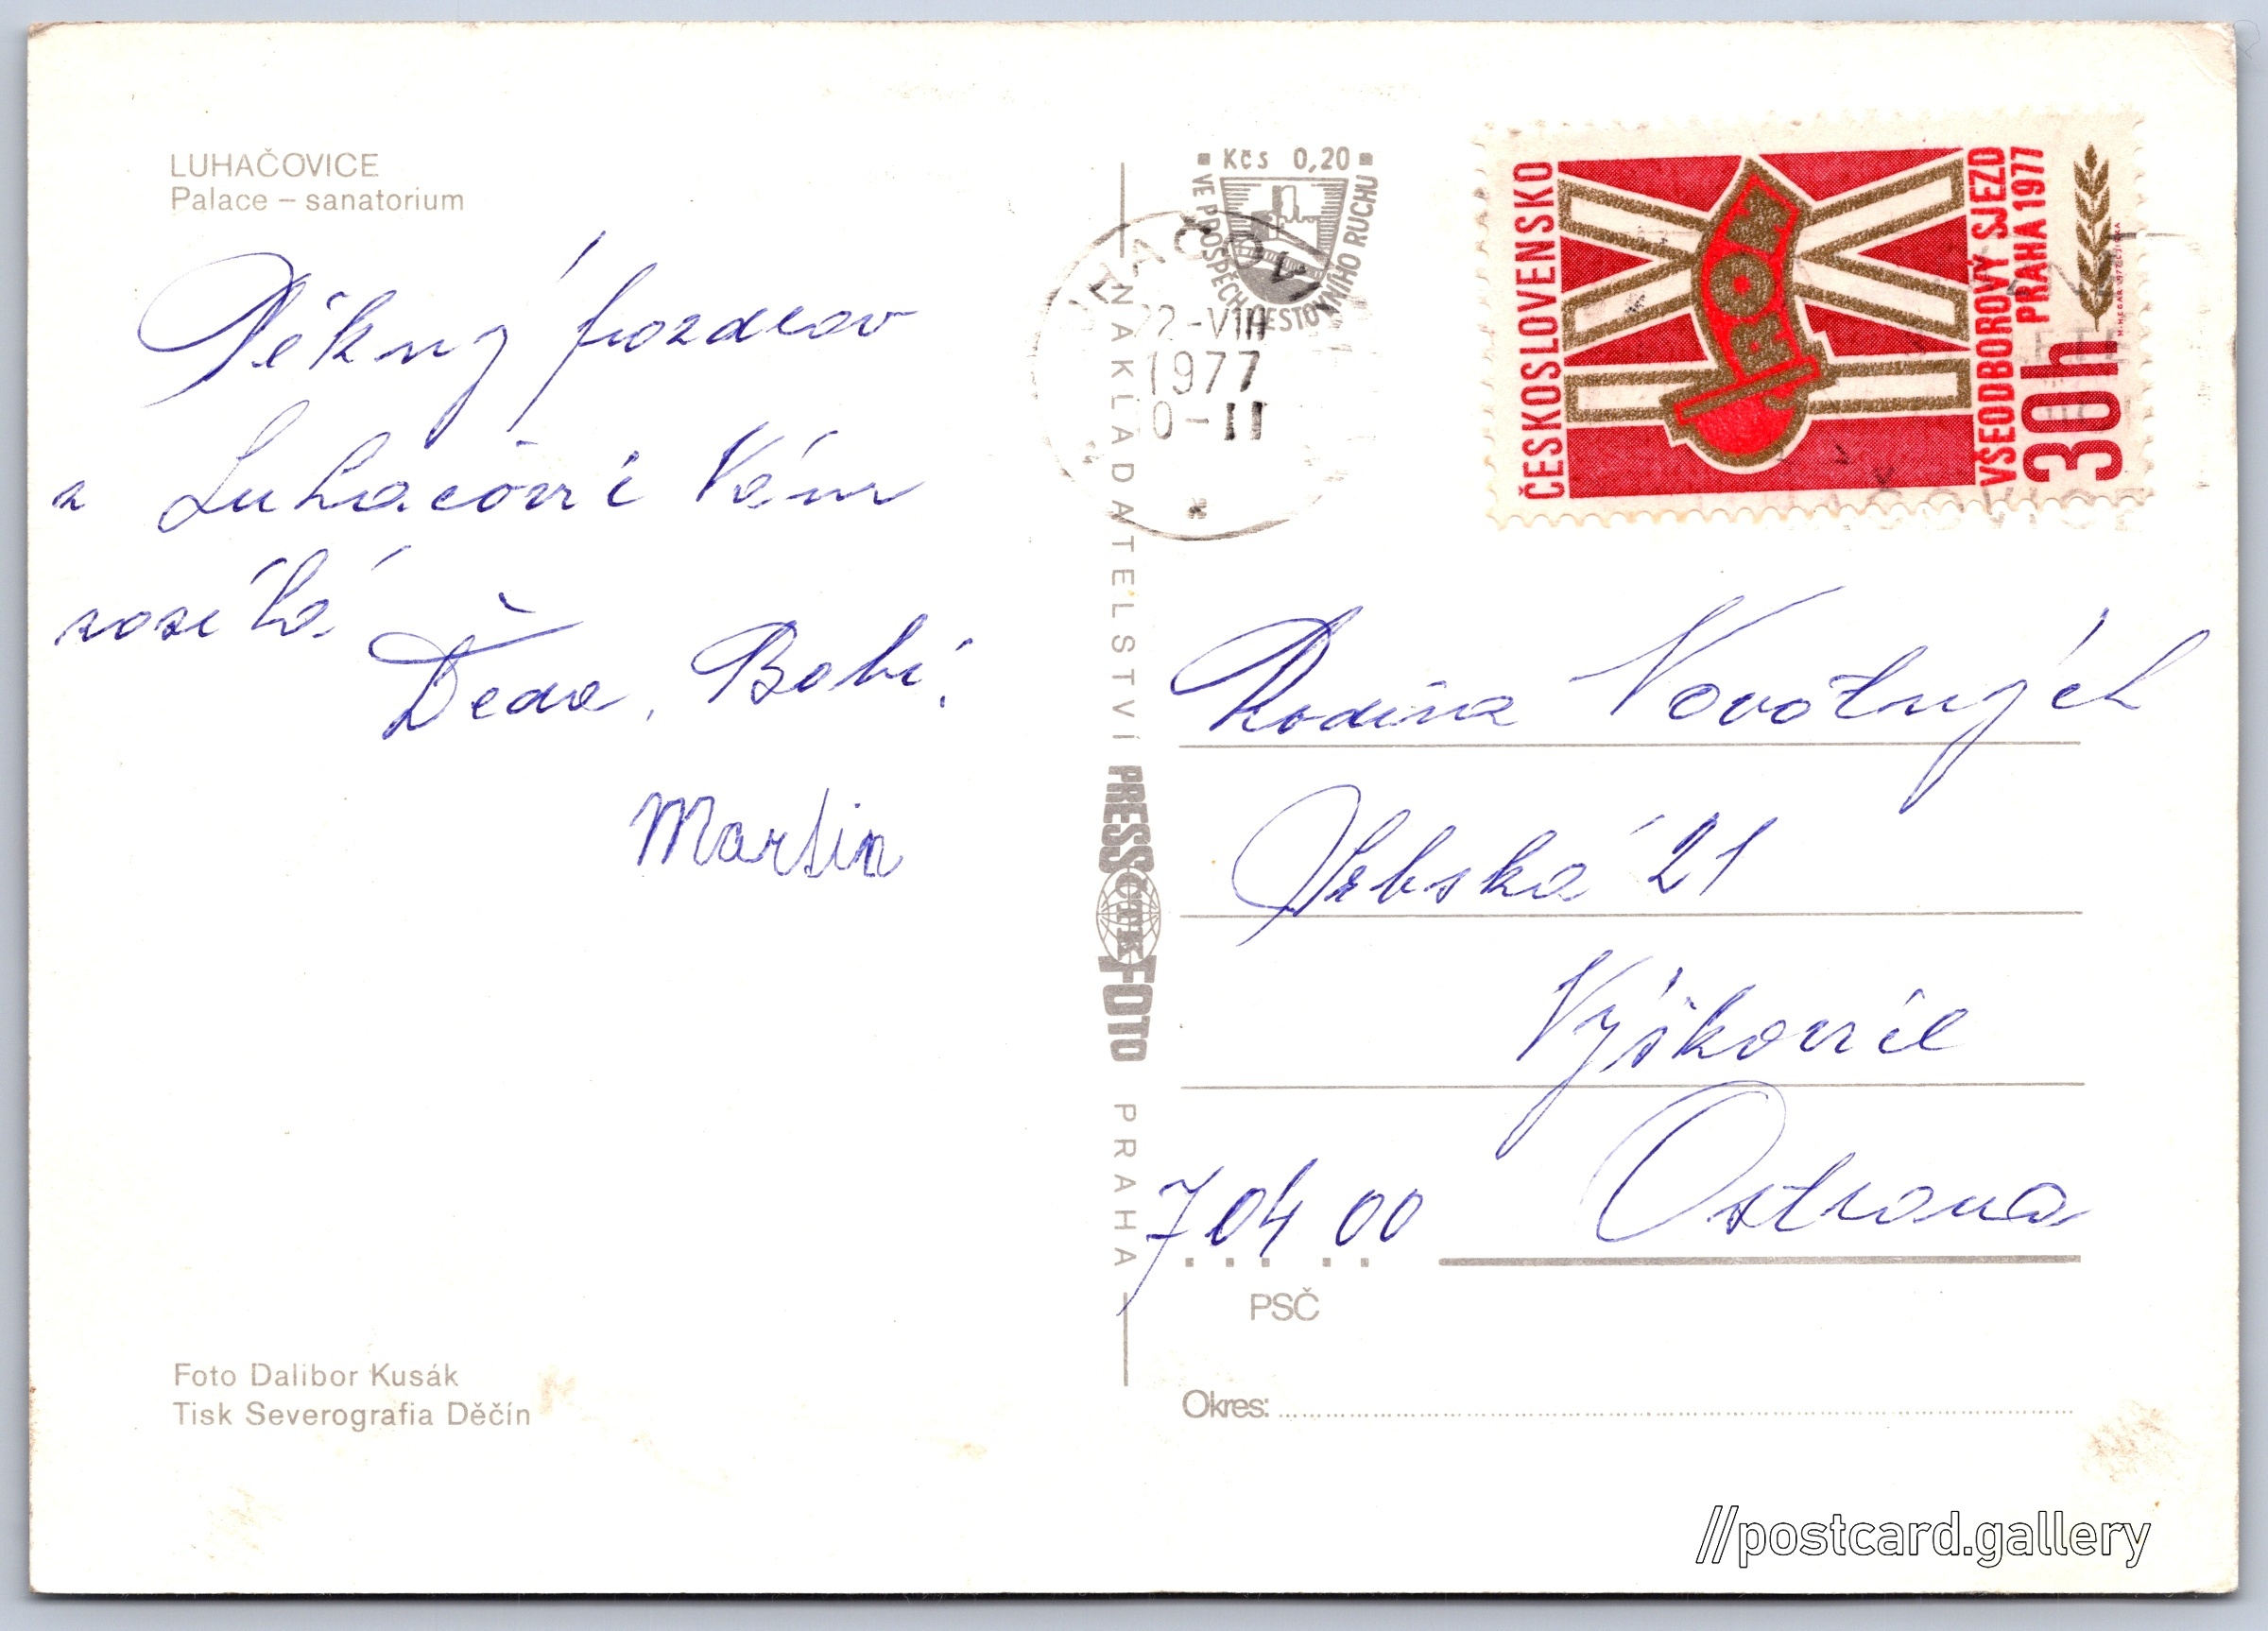 LUHAČOVICE
Palace – sanatorium
Pěkný pozdrav
z Luhačovic Vám
zasílá
Děda, Babi,
Martin
Foto Dalibor Kusák
Tisk Severografia Děčín
NAKLADATELSTVÍ PRESSFOTO PRAHA
ČTK
Kčs 0,20
VE PROSPĚCH CESTOVNÍHO RUCHU
HAČOVI
22-VIII
1977
0-11
ČESKOSLOVENSKO
IX
ROH
VŠEODBOROVÝ SJEZD
PRAHA 1977
30h
Rodina Novotných
Vrbská 21
Výškovice
704 00 Ostrava
PSČ
Okres:
//postcard.gallery